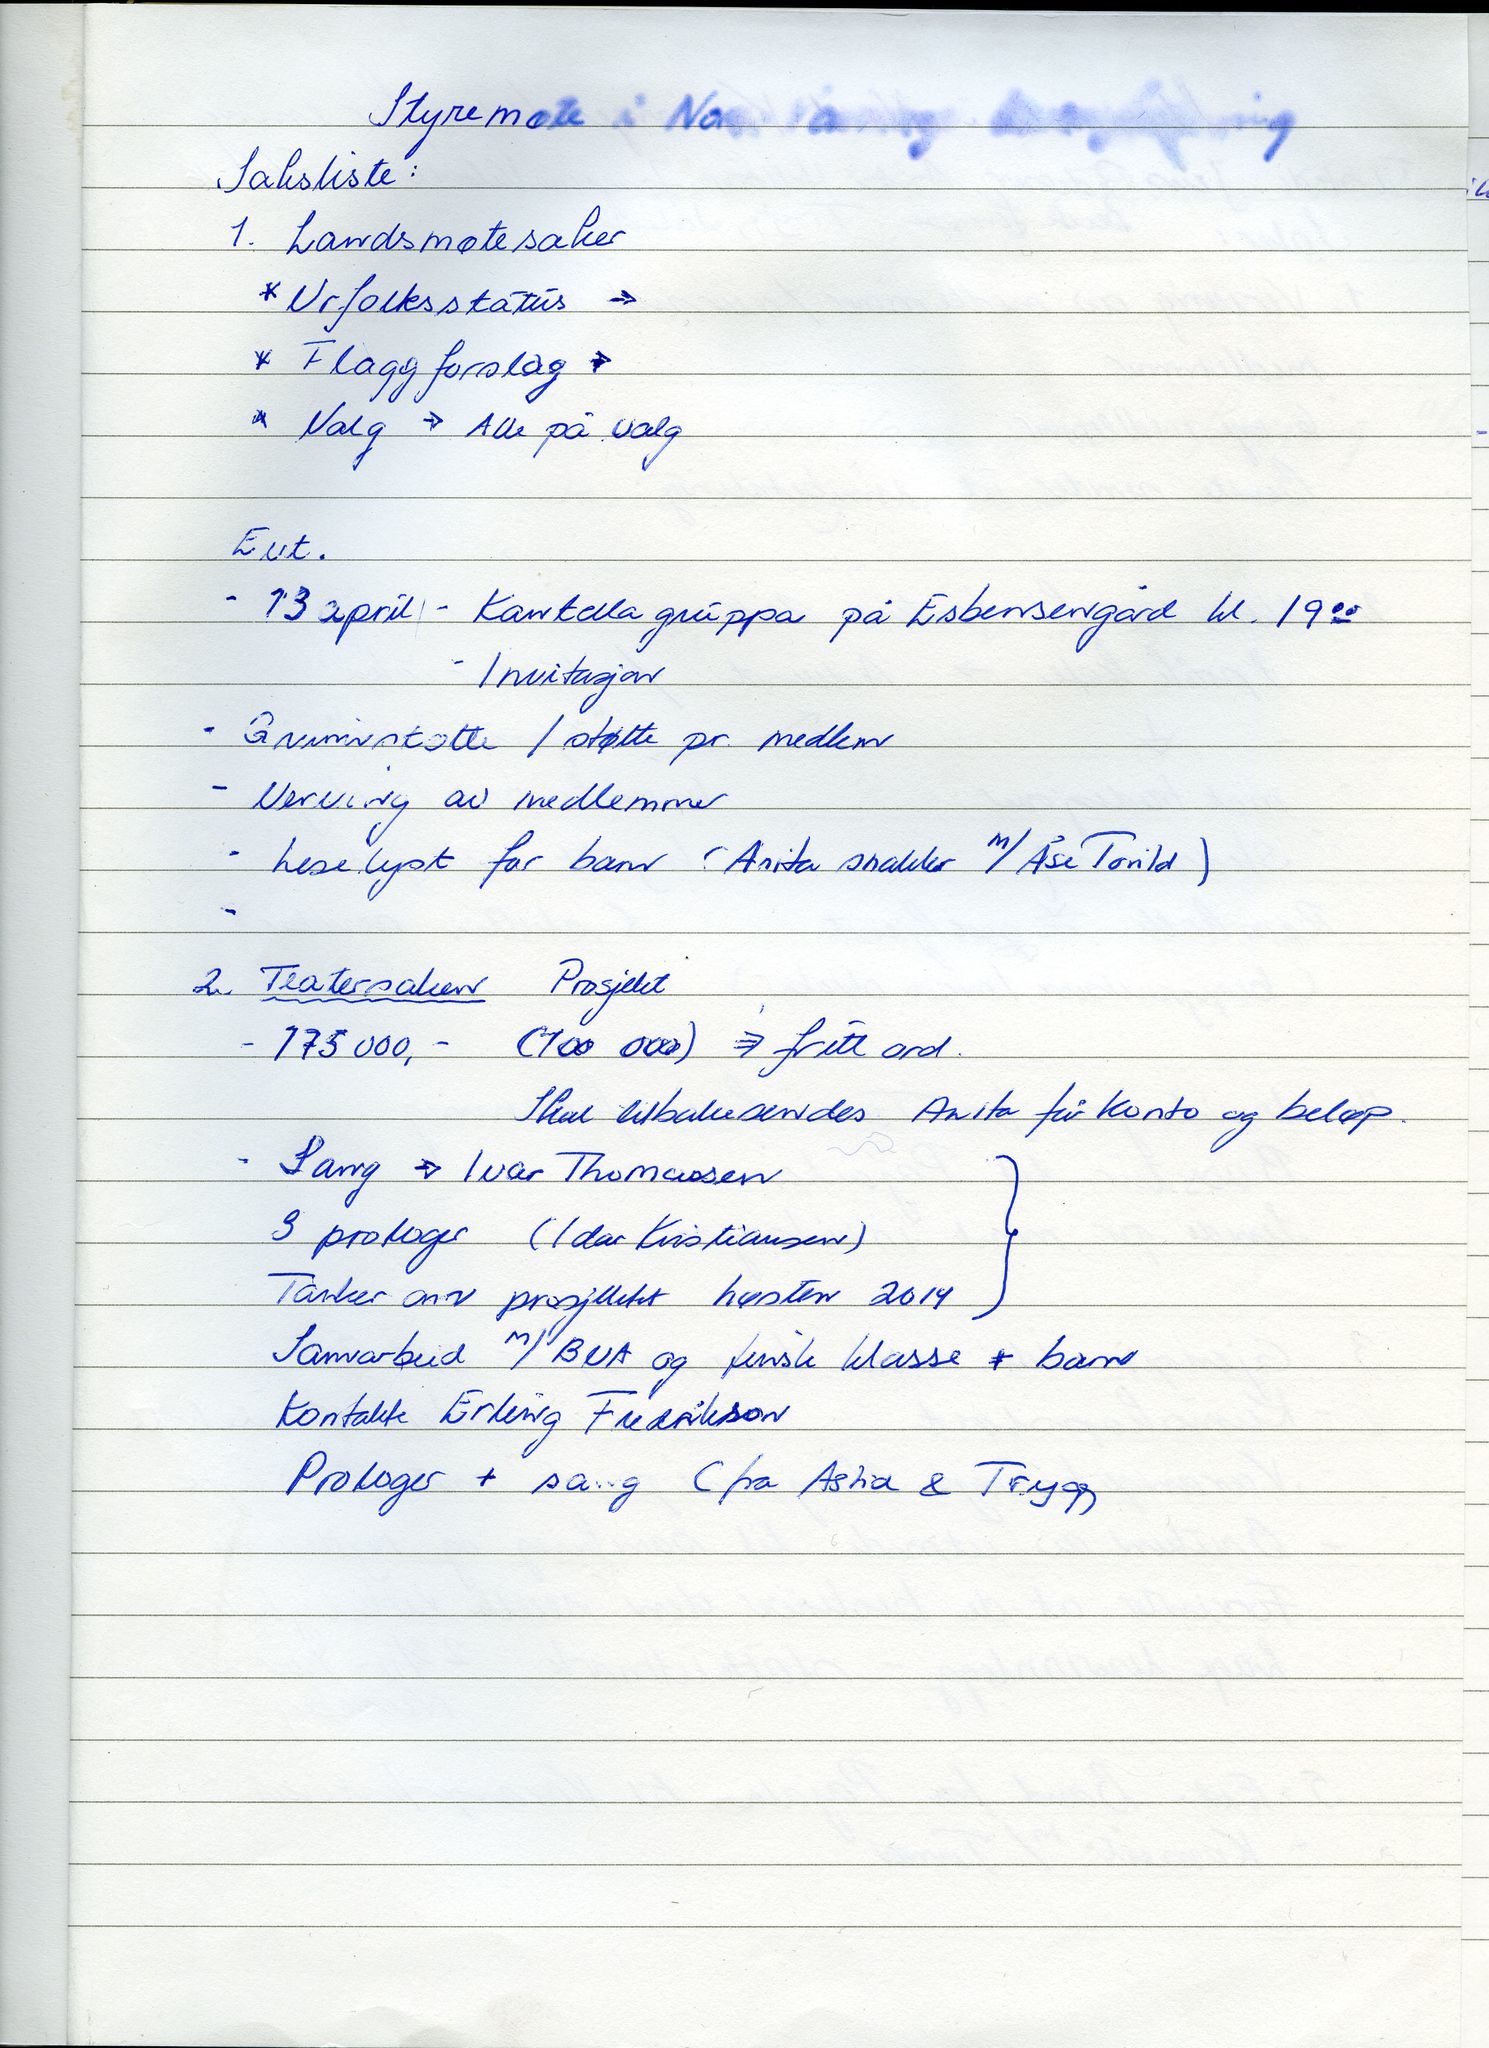 Styremøte i
Saksliste:
1. Landsmøtesaker
* Urfolksstatus →
* Flagg forslag →
* Valg → Alle på valg
Evt.
- 13 april - Kantella gruppa på Esbensengård kl. 19 00
- Invitasjon
- Grunnstøtte / støtte pr. medlem
- Verving av medlemmer
- Lese lyst for barn (Anita snakker m/ Åse Torild)
-
2. Teatersaken Prosjekt
- 175 000,- (100 000) ⇒ fritt ord.
Skal tilbakesendes Anita får konto og beløp.
- Sang → Ivar Thomassen
3 prologer (Idar Kristiansen)
Tanker om prosjektet høsten 2014
Samarbeid m/ BUA og finsk klasse + barn
Kontakte Erling Fredrikson
Prologer + sang (fra Astrid & Trygg